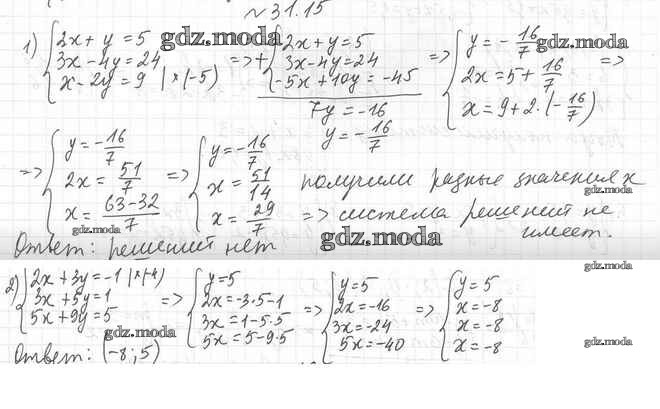 №31.15
1) { 2x + y = 5
3x - 4y = 24
x - 2y = 9 | × (-5)
=> + { 2x + y = 5
3x - 4y = 24
-5x + 10y = -45
7y = -16
y = -16/7
=> { y = -16/7
2x = 5 + 16/7
x = 9 + 2·(-16/7)
=>
=> { y = -16/7
2x = 51/7
x = (63-32)/7
=> { y = -16/7
x = 51/14
x = 29/7
получили разные значения x
=> система решений не
имеет.
Ответ: решений нет
2) { 2x + 3y = -1 | × (-4)
3x + 5y = 1
5x + 9y = 5
=> { y = 5
2x = -3·5-1
3x = 1-5·5
5x = 5-9·5
=> { y = 5
2x = -16
3x = -24
5x = -40
=> { y = 5
x = -8
x = -8
x = -8
Ответ: (-8; 5)
gdz.moda
gdz.moda
gdz.moda
gdz.moda
gdz.moda
gdz.moda
gdz.moda
gdz.moda
gdz.moda